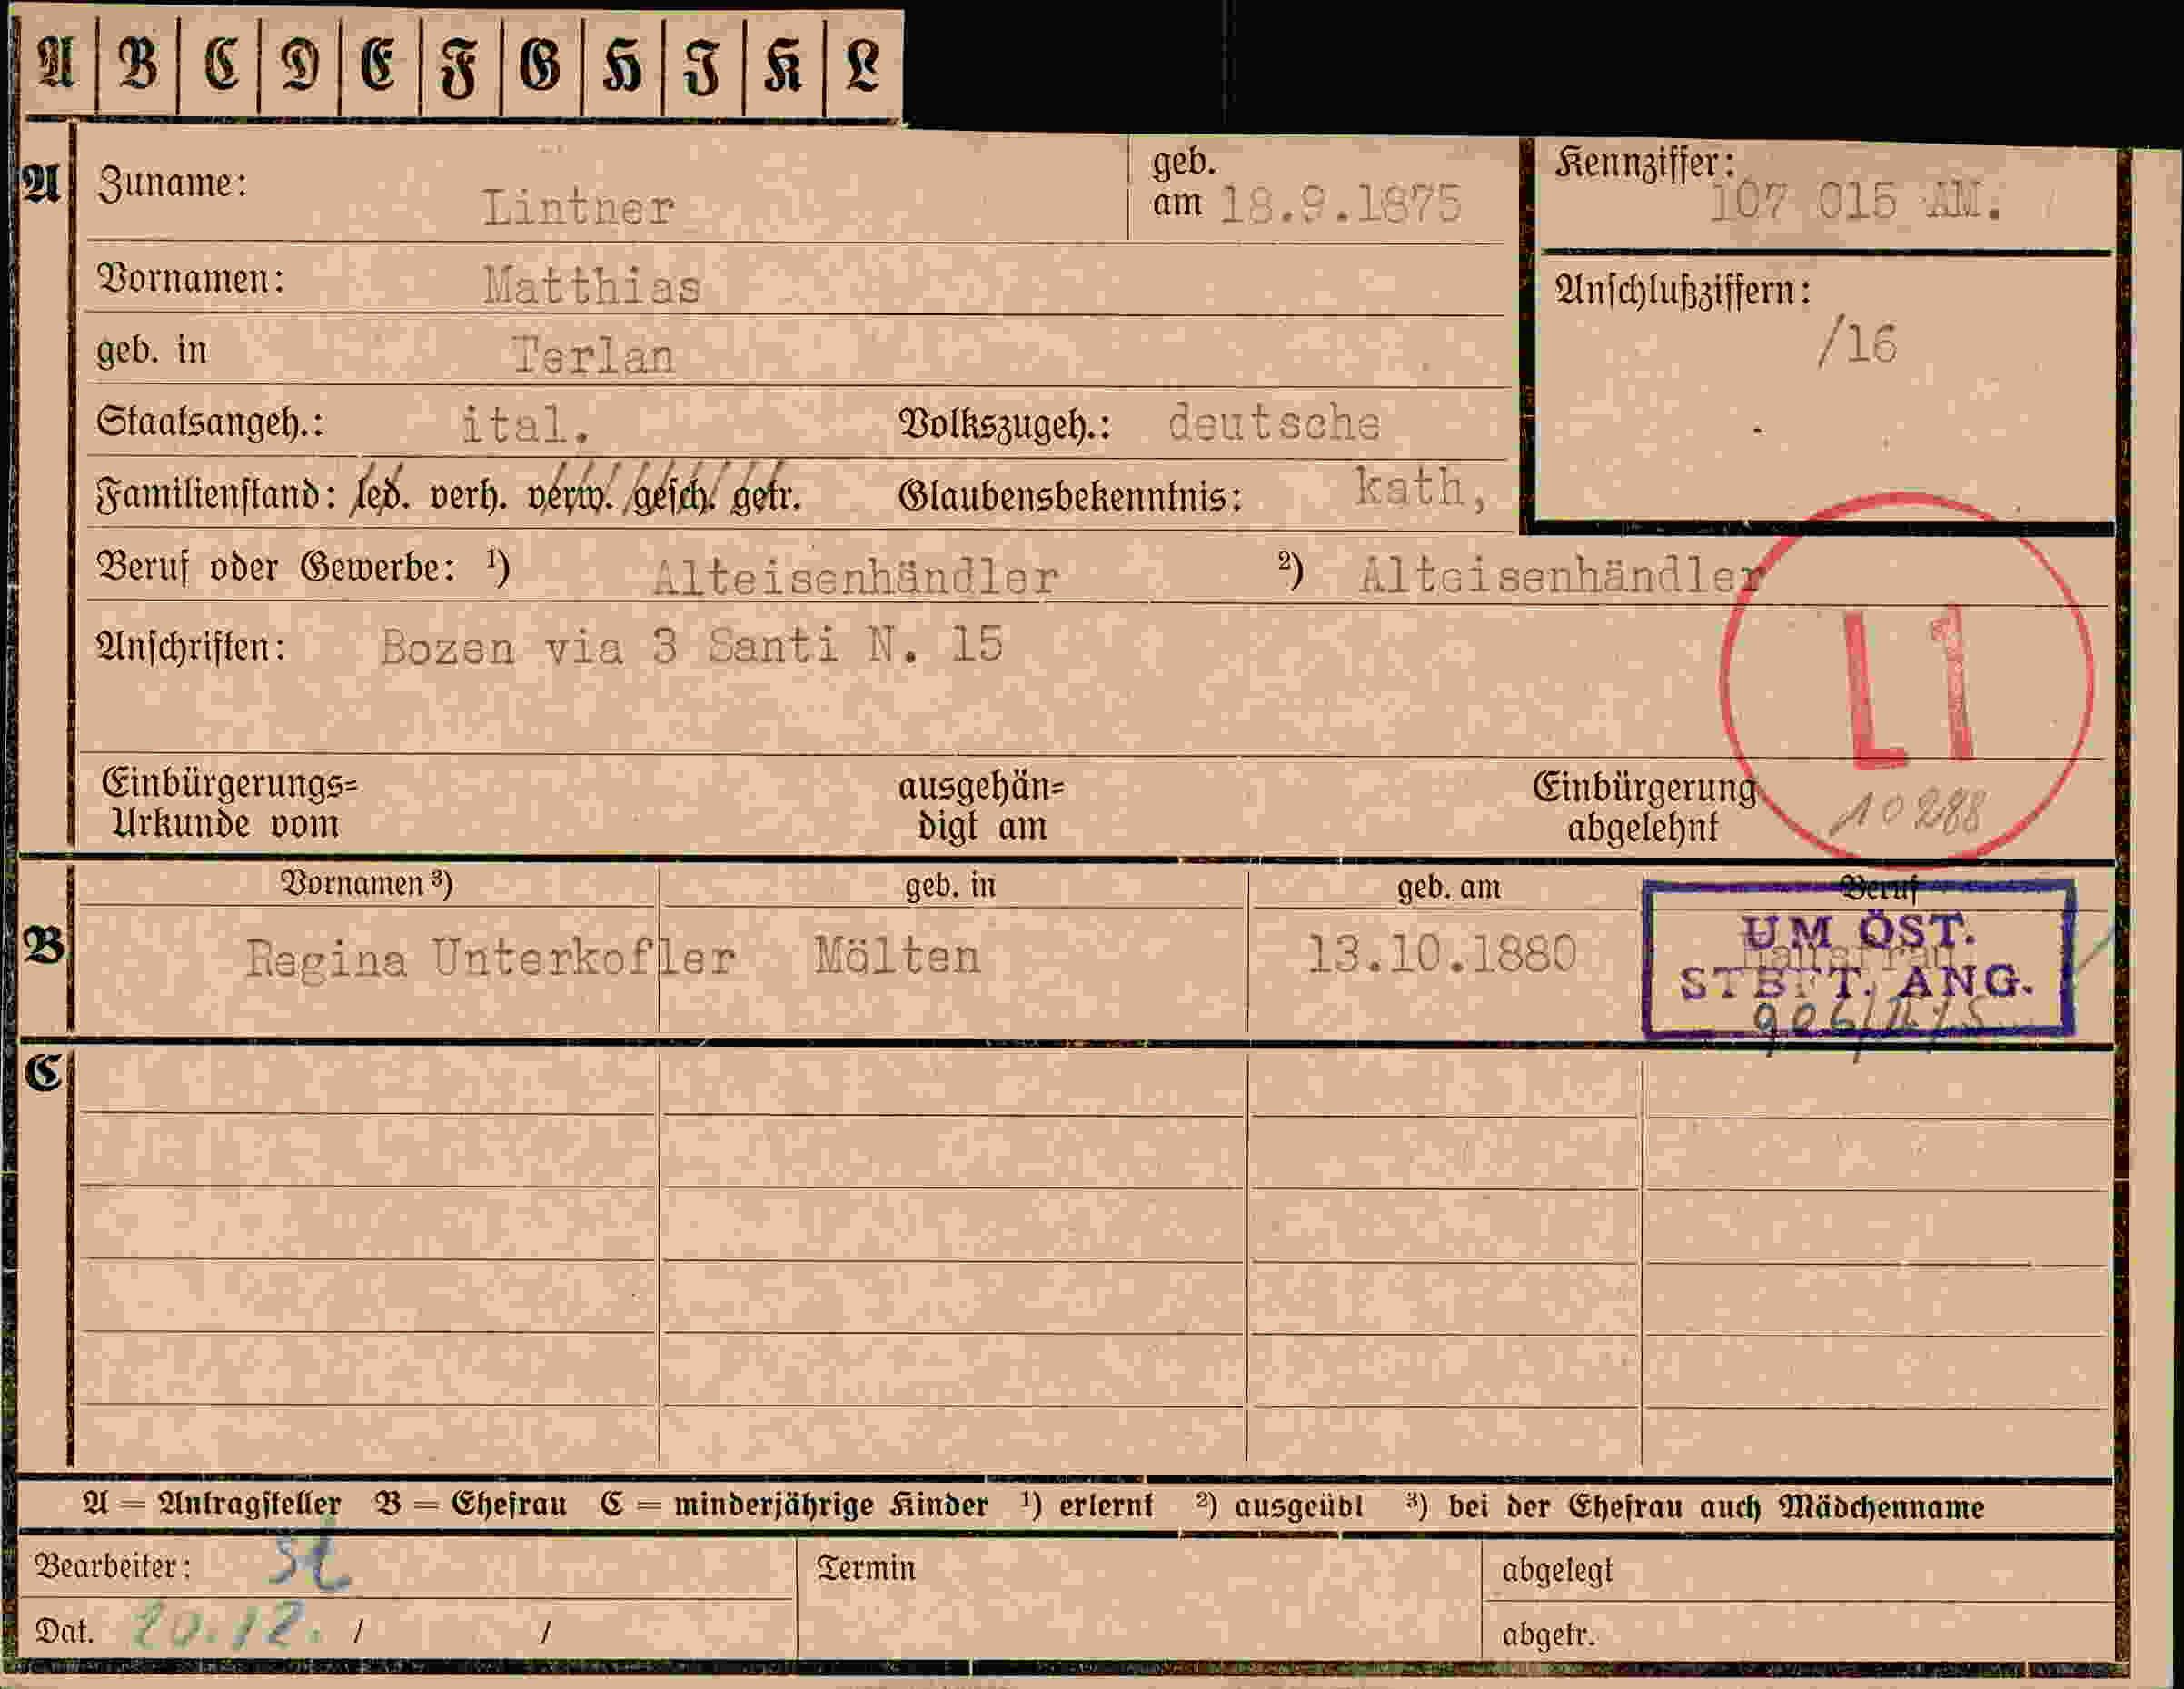 A B C D E F G H I K L
A Zuname: Lintner geb. am 18.9.1875 Kennziffer: 107 015 AM.
Vornamen: Matthias Anschlußziffern: /16
geb. in Terlan
Staatsangeh.: ital. Volkszugeh.: deutsche
Familienstand: led. verh. verw. gesch. getr. Glaubensbekenntnis: kath,
Beruf oder Gewerbe: 1) Alteisenhändler 2) Alteisenhändler
Anschriften: Bozen via 3 Santi N. 15
L1
Einbürgerungs= ausgehän= Einbürgerung
Urkunde vom digt am abgelehnt 10288
B Vornamen 3) geb. in geb. am Beruf
Regina Unterkofler Mölten 13.10.1880 Hausfrau
UM ÖST.
STBFT. ANG.
C
A = Antragsteller B = Ehefrau C = minderjährige Kinder 1) erlernt 2) ausgeübt 3) bei der Ehefrau auch Mädchenname
Bearbeiter: Termin abgelegt
Dat. 20.12. / / abgetr.